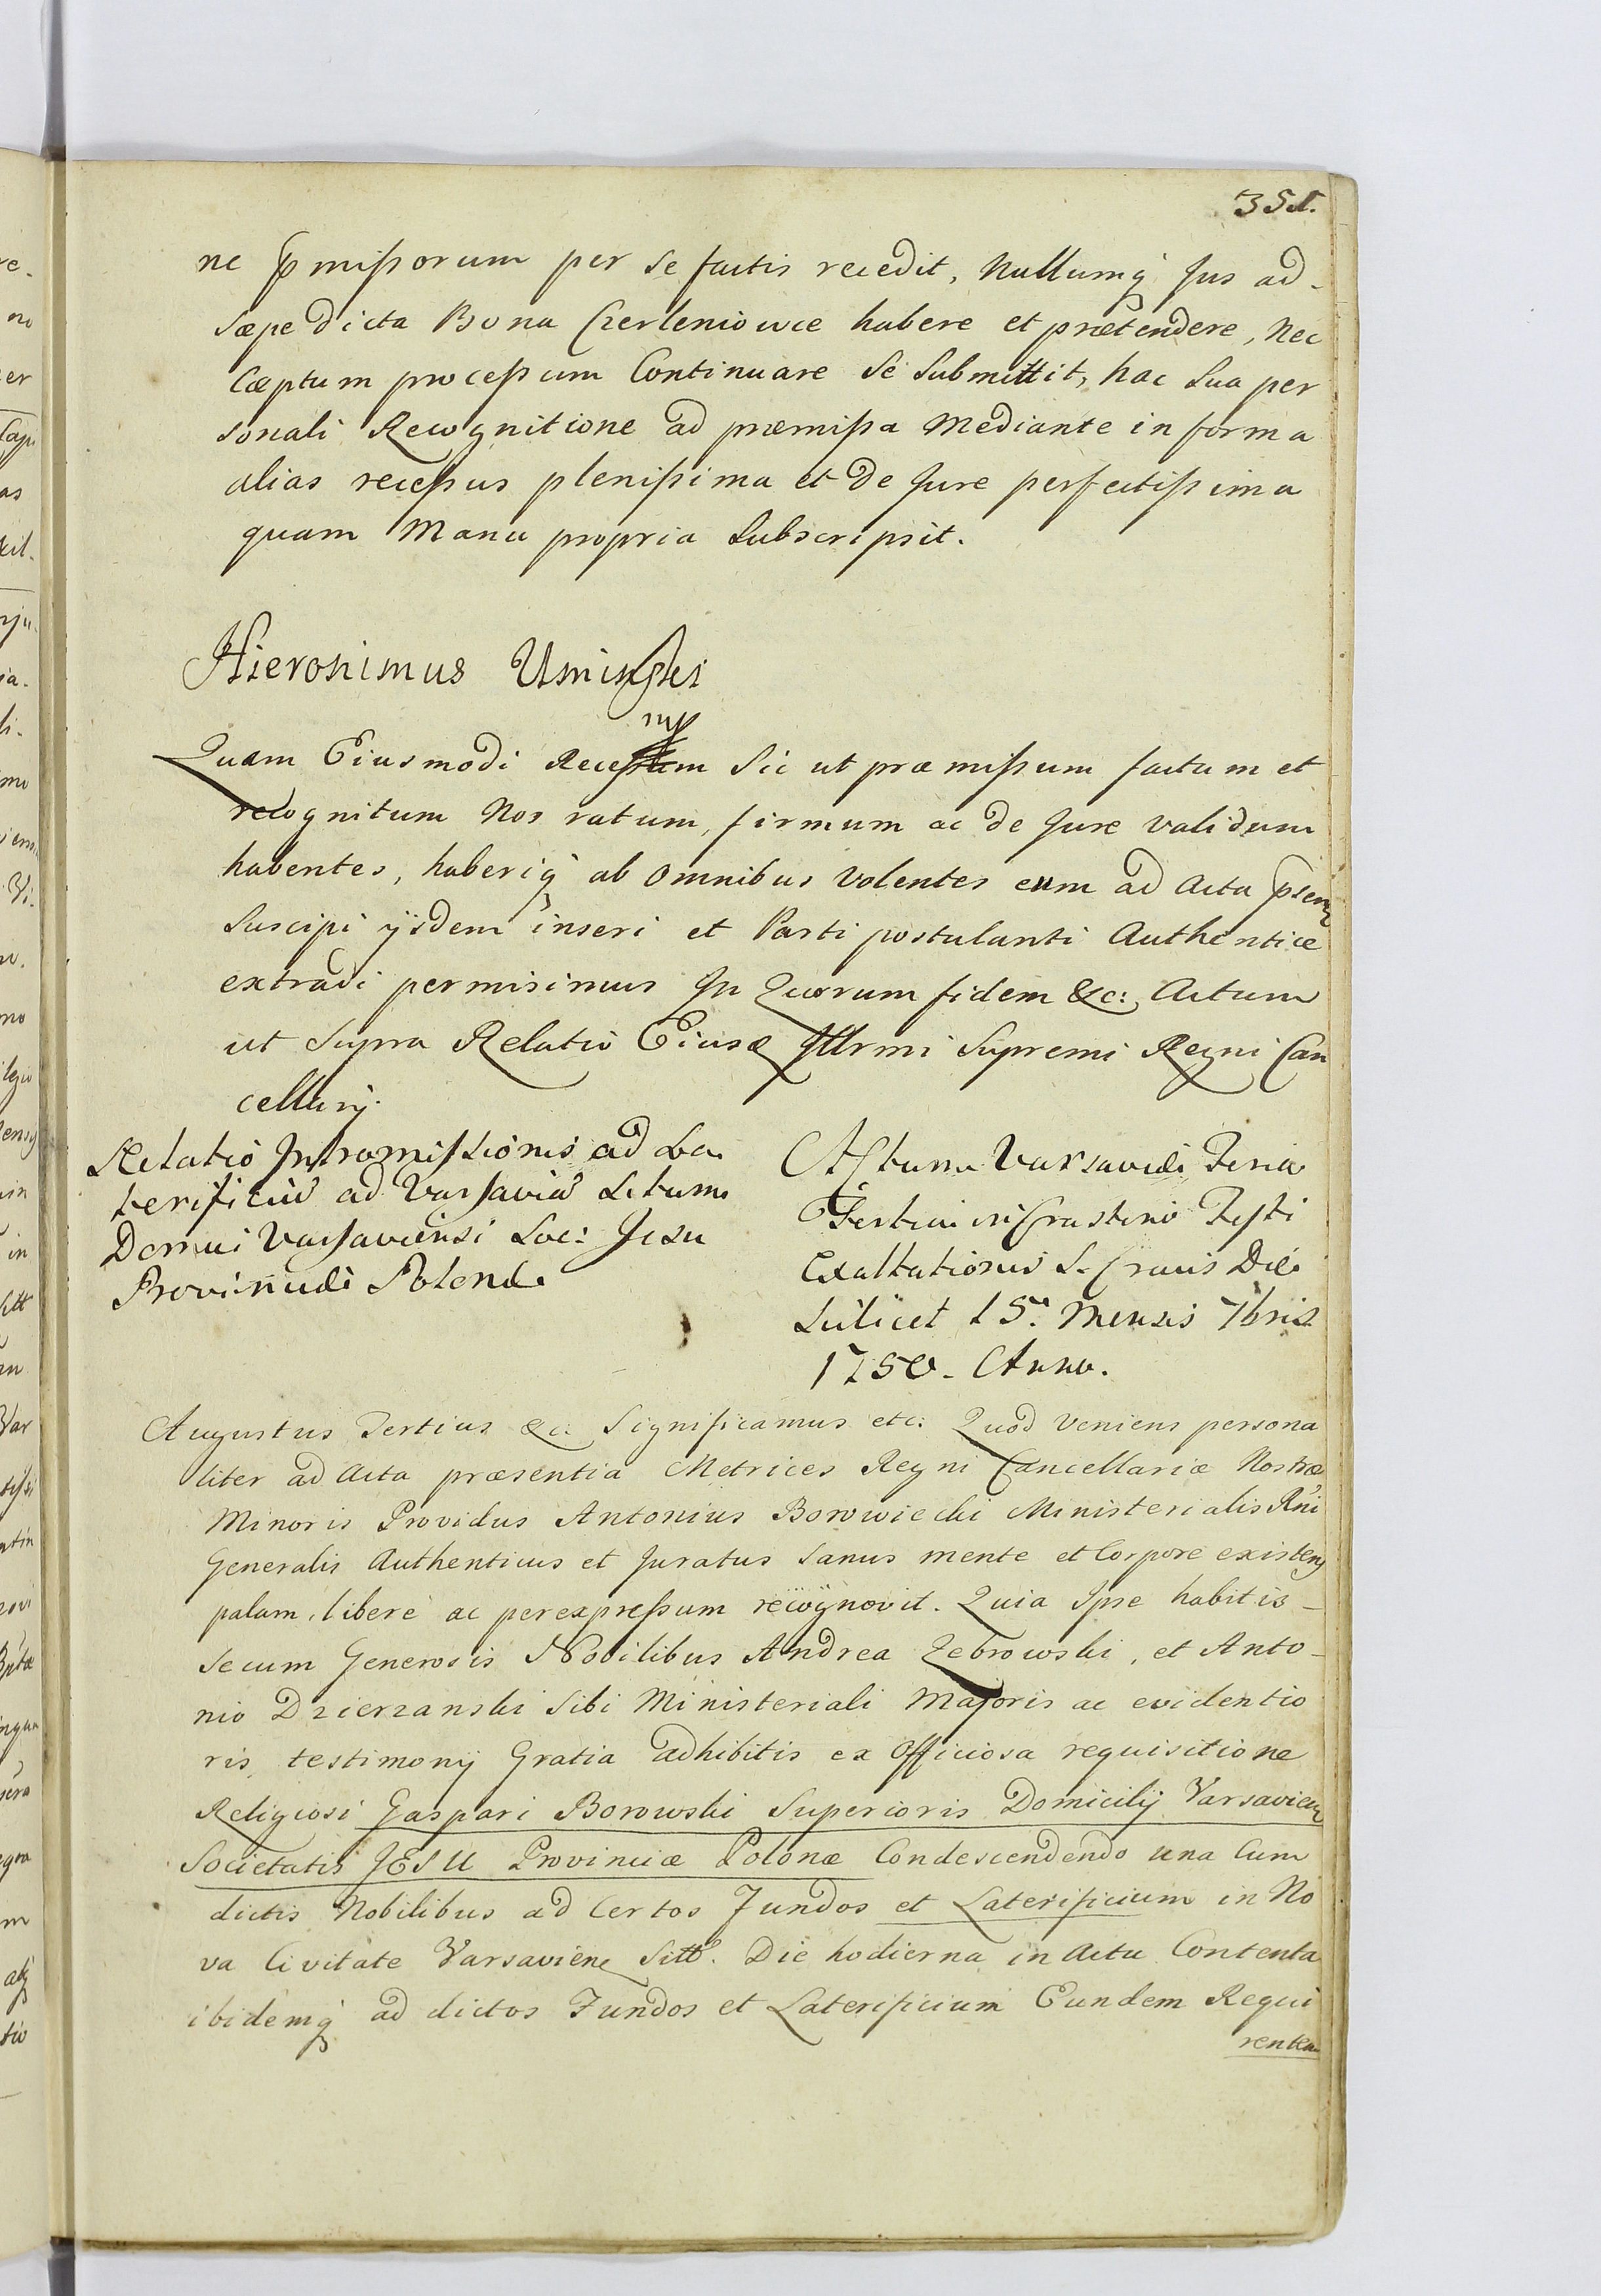 351.
ne p̱missorum per se factis recedit, Nullumq̷ Jus ad-
sæpe dicta Bona Czerleniowce habere et prætendere, Nec
Cæptum processum Continuare se submittit, hac sua per
sonali Recognitione ad præmissa Mediante in forma
alias recessus plenissima et de Jure perfectissima
quam Manu propria subscripsit.
Hieronimus Uminski
mp
Quam Eiusmodi Recessum sic ut præmissum factum et
recognitum Nos ratum, firmum ac de Jure validum
habentes, haberiq̷ ab omnibus volentes eum ad Acta
suscipi ijsdem inseri et Parti postulanti Authentice
extradi permisimus In Quorum fidem &c: Actum
ut supra Relatio Eiusd Illrmi Supremi Regni Can
cellarij.
Relatio Intromissionis ad La
terificiũ ad Varsaviã Situm
Domui Varsaviensi Soc: Jesu
Provinciæ Polonæ
Actum Varsaviæ Feria
Tertia in Crastino Festi
Exaltationis S. Crucis Die
scilicet 15a Mensis 7bris
1750. Anno.
Augustus Tertius &c: Significamus etc: Quod veniens persona
liter ad Acta præsentia Metrices Regni Cancellariæ Nostræ
Minoris Providus Antonius Borowiecki Ministerialis Rni
Generalis Authenticus et Juratus sanus mente et Corpore existens
palam, libere ac per expressum recognovit. Quia Ipse habitis-
secum Generosis Nobilibus Andrea Zebrowski, et Anto-
nio Dzierzanski sibi Ministeriali Majoris ac evidentio
ris testimonij Gratia adhibitis ex Officiosa requisitione
Religiosi Gaspari Borowski Superioris Domicilij Varsavien
Societatis JESU Provinciæ Polonæ Condescendendo una Cum
dictis Nobilibus ad Certos Fundos et Laterificium in No
va Civitate Varsavien Sitt. Die hodierna in Actu Contenta
ibidemq̷ ad dictos Fundos et Laterificium Eundem Requi
rentem